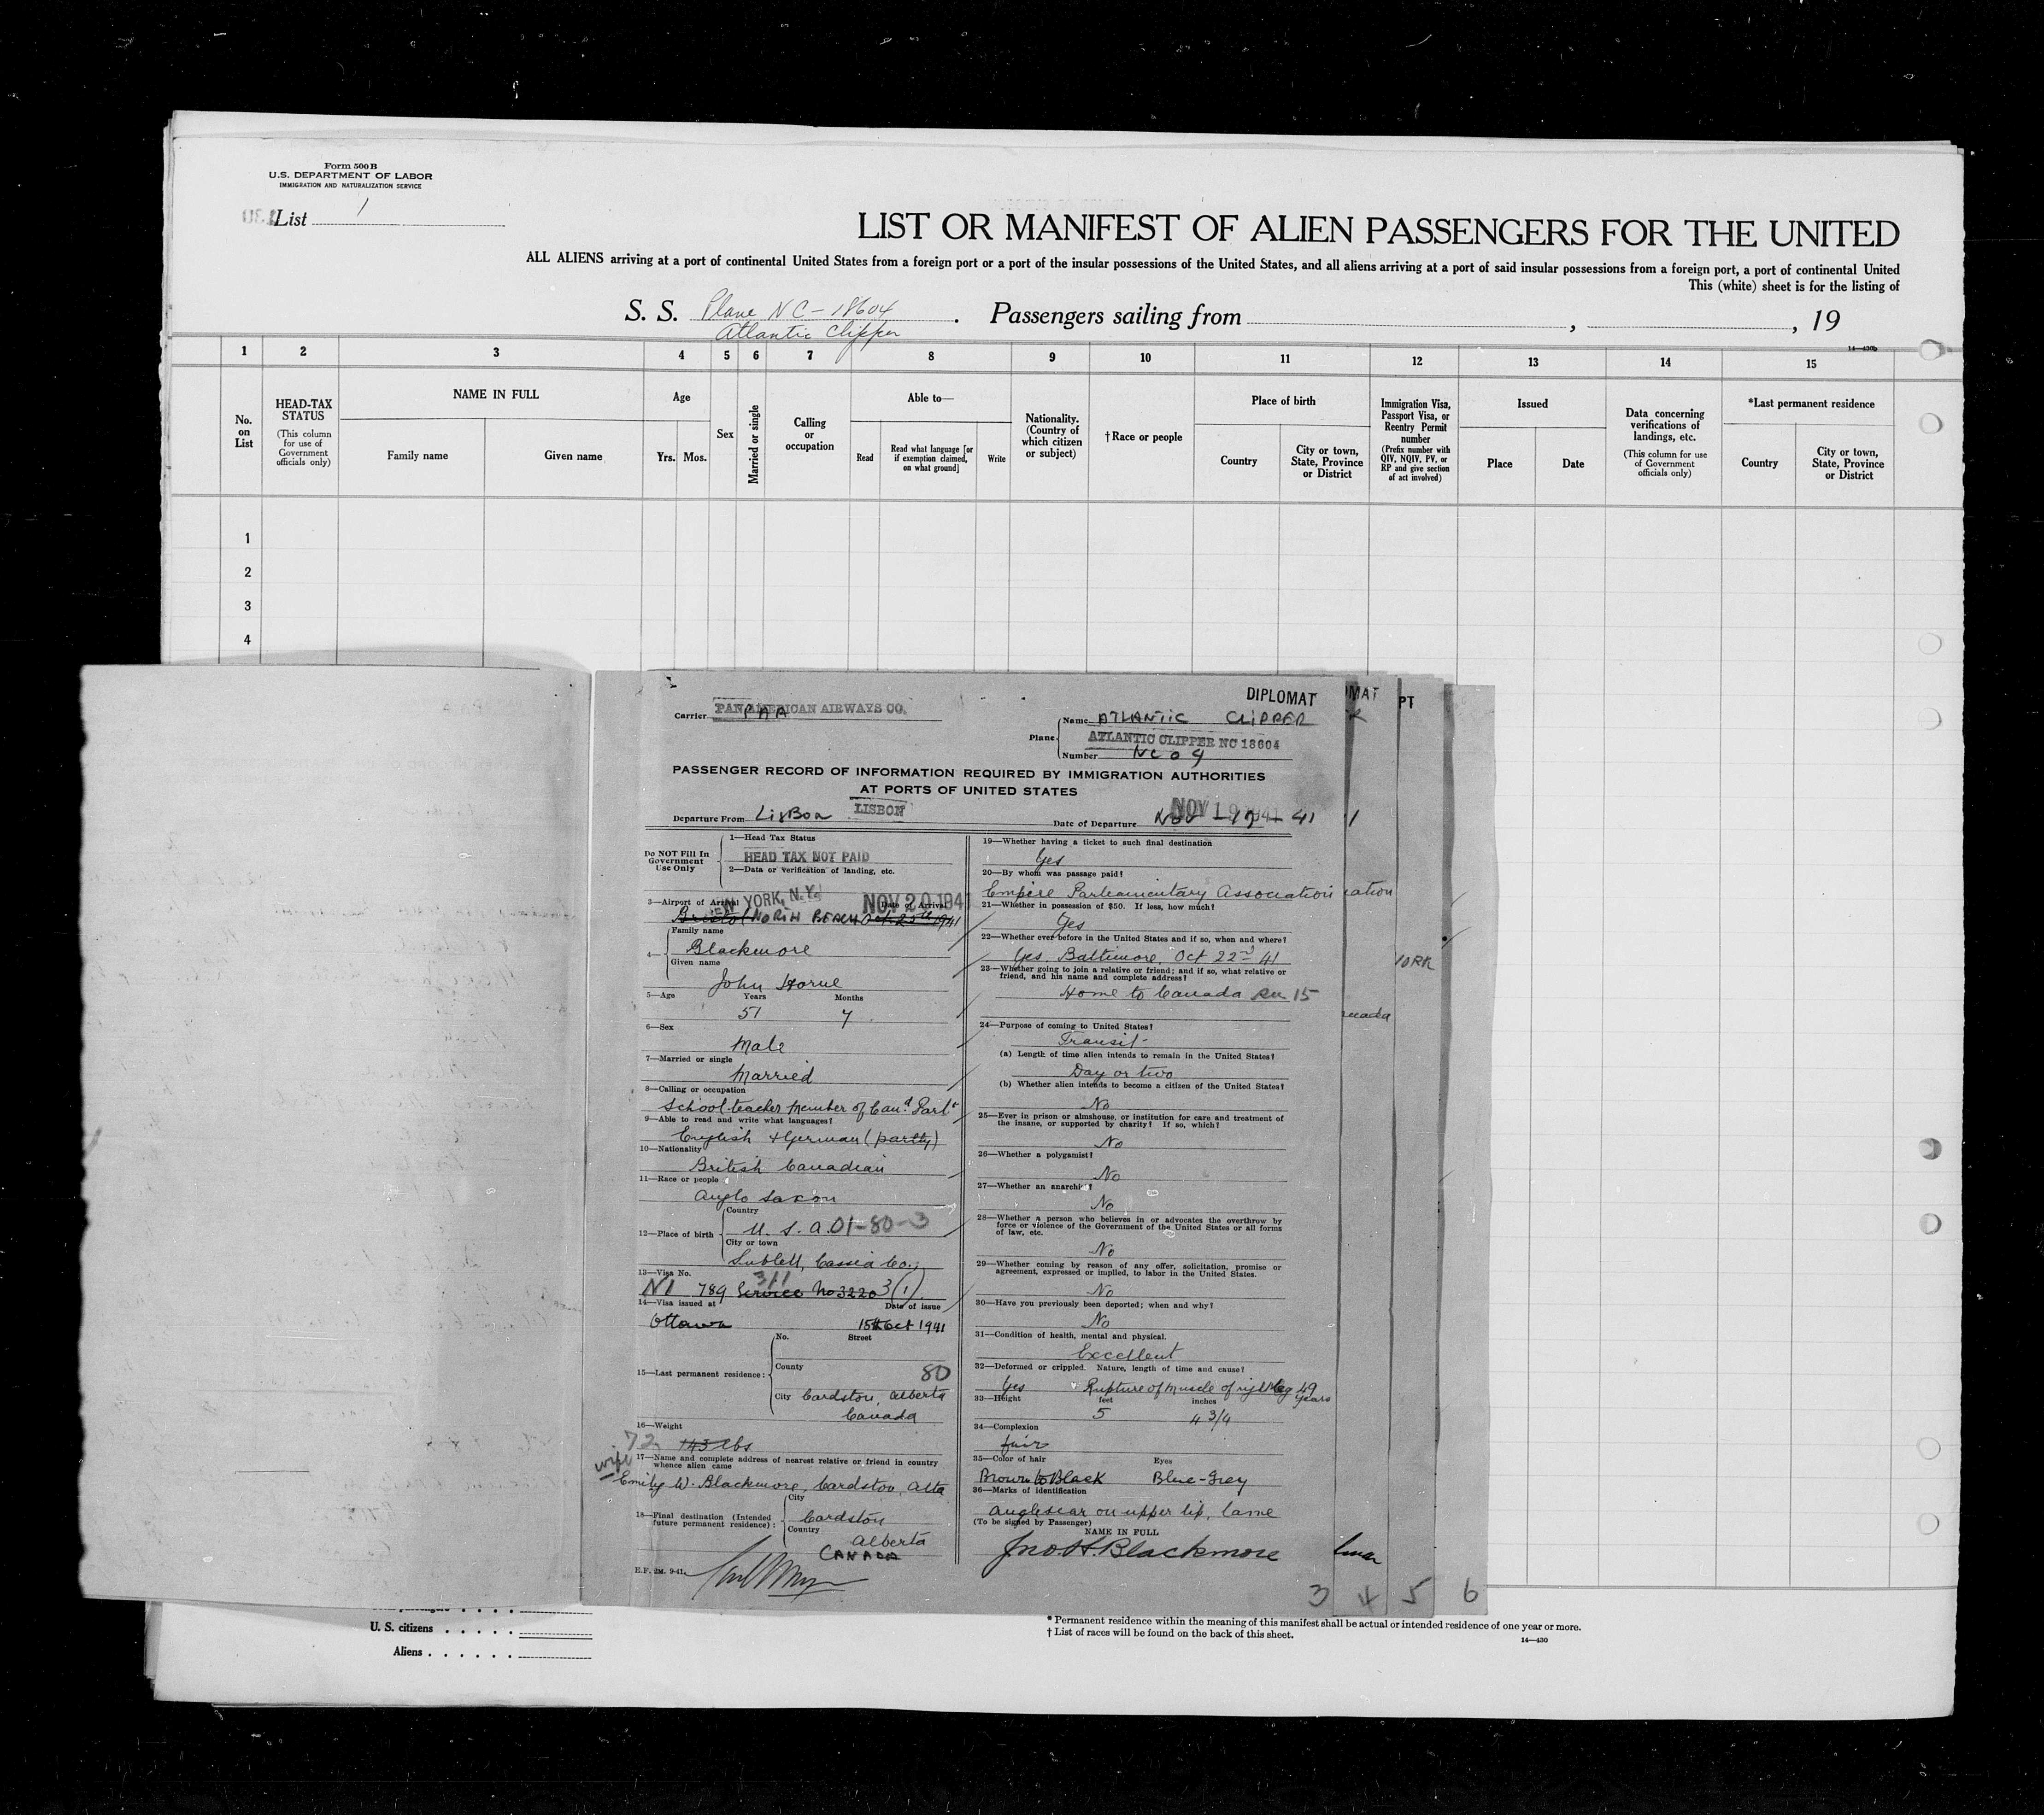 Form 500 B
U.S. DEPARTMENT OF LABOR
IMMIGRATION AND NATURALIZATION SERVICE
List 1
LIST OR MANIFEST OF ALIEN PASSENGERS FOR THE UNITED
ALL ALIENS arriving at a port of continental United States from a foreign port or a port of the insular possessions of the United States, and all aliens arriving at a port of said insular possessions from a foreign port, a port of continental United
This (white) sheet is for the listing of
S. S. Plane NC-18604 . Passengers sailing from , , 19
Atlantic Clipper
14—430b
1 2 3 4 5 6 7 8 9 10 11 12 13 14 15
No. on List
HEAD-TAX STATUS
(This column for use of Government officials only)
NAME IN FULL
Family name
Given name
Age
Yrs. Mos.
Sex
Married or single
Calling or occupation
Able to—
Read
Read what language [or if exemption claimed, on what ground]
Write
Nationality. (Country of which citizen or subject)
†Race or people
Place of birth
Country
City or town, State, Province or District
Immigration Visa, Passport Visa, or Reentry Permit number
(Prefix number with QIV, NQIV, PV, or RP and give section of act involved)
Issued
Place
Date
Data concerning verifications of landings, etc.
(This column for use of Government officials only)
*Last permanent residence
Country
City or town, State, Province or District
1
2
3
4
DIPLOMAT
OMAT
PT
Carrier PAN AMERICAN AIRWAYS CO.
PAA
Plane
Name ATLANTIC CLIPPER
ATLANTIC CLIPPER NC 18604
Number NC 04
PASSENGER RECORD OF INFORMATION REQUIRED BY IMMIGRATION AUTHORITIES
AT PORTS OF UNITED STATES
Departure From LisBoa LISBON
Date of Departure Nov 19 41
NOV 19 1941
Do NOT Fill In Government Use Only
1—Head Tax Status
HEAD TAX NOT PAID
2—Data or verification of landing, etc.
3—Airport of Arrival
NEW YORK, N.Y.
Date of Arrival
NOV 20 1941
Bristol NORTH BEACH Oct 25th 1941
4—
Family name
Blackmore
Given name
John Horne
5—Age
Years Months
51 7
6—Sex
Male
7—Married or single
Married
8—Calling or occupation
School teacher Member of Can. Parlt
9—Able to read and write what languages?
English + German (partly)
10—Nationality
British Canadian
11—Race or people
Anglo Saxon
12—Place of birth
Country
U. S. A. 01-80-3
City or town
Sublett, Cassia Co.,
13—Visa No.
311
NI 789 Service No 3220 3(1)
14—Visa issued at
Date of issue
Ottawa 15th Oct 1941
15—Last permanent residence:
No. Street
County
80
City Cardston, Alberta
Canada
16—Weight
72 143 lbs
17—Name and complete address of nearest relative or friend in country whence alien came
wife
Emily W. Blackmore, Cardston, Alta
18—Final destination (Intended future permanent residence):
City
Cardston
Country
Alberta
CANADA
E.F. 2M. 9-41.
19—Whether having a ticket to such final destination
Yes
20—By whom was passage paid?
Empire Parliamentary Association
21—Whether in possession of $50. If less, how much?
Yes
22—Whether ever before in the United States and if so, when and where?
Yes. Baltimore, Oct 22nd 41
23—Whether going to join a relative or friend; and if so, what relative or friend, and his name and complete address?
Home to Canada 15
24—Purpose of coming to United States?
Transit
(a) Length of time alien intends to remain in the United States?
Day or two
(b) Whether alien intends to become a citizen of the United States?
No
25—Ever in prison or almshouse, or institution for care and treatment of the insane, or supported by charity? If so, which?
No
26—Whether a polygamist?
No
27—Whether an anarchist?
No
28—Whether a person who believes in or advocates the overthrow by force or violence of the Government of the United States or all forms of law, etc.
No
29—Whether coming by reason of any offer, solicitation, promise or agreement, expressed or implied, to labor in the United States.
No
30—Have you previously been deported; when and why?
No
31—Condition of health, mental and physical.
Excellent
32—Deformed or crippled. Nature, length of time and cause?
Yes Rupture of muscle of right leg 49 years
33—Height
feet inches
5 4 3/4
34—Complexion
fair
35—Color of hair Eyes
Brown to Black Blue-Grey
36—Marks of identification
Angle scar on upper lip, lame
(To be signed by Passenger)
NAME IN FULL
Jno. H. Blackmore
3 4 5 6
U. S. citizens
Aliens
* Permanent residence within the meaning of this manifest shall be actual or intended residence of one year or more.
† List of races will be found on the back of this sheet.
14—430